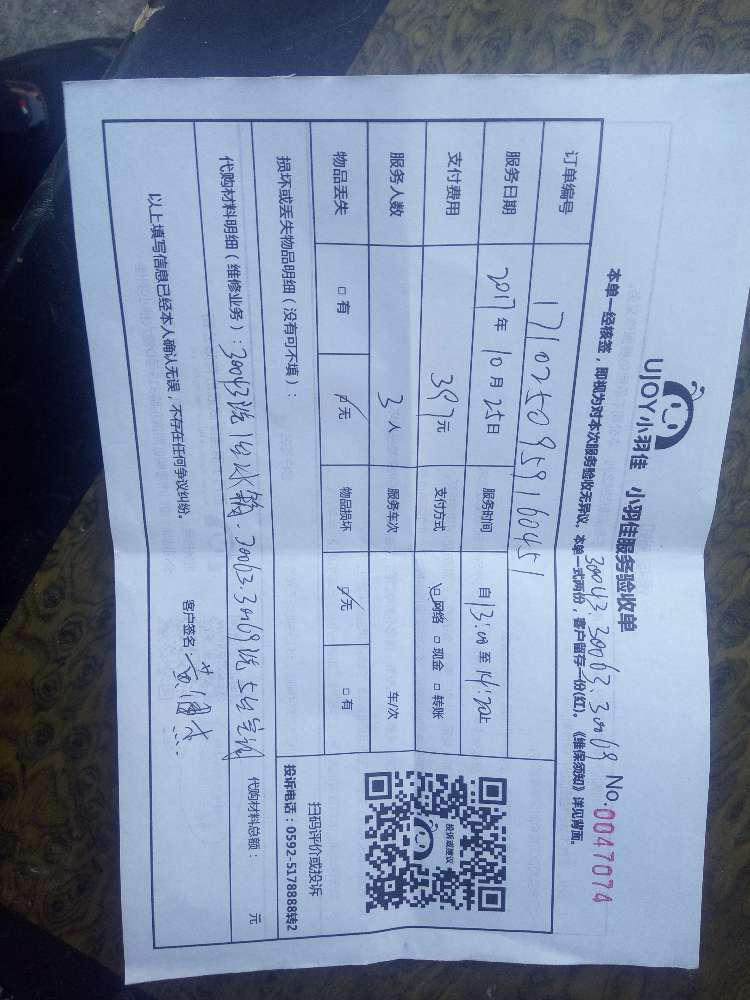 UJOY小羽佳 小羽佳服务验收单 No.0047074
30043.30063.30069
本单一经核签,即视为对本次服务验收无异议。本单一式两份,客户留存一份(红)。《维保须知》详见背面。
订单编号 1710250959160451
服务日期 2017年10月25日 服务时间 自13:00至14:20止
支付费用 397元 支付方式 ☑网络 □现金 □转账
服务人数 3人 服务车次 车/次
物品丢失 □有 ☑无 物品损坏 ☑无 □有
投诉或建议
扫码评价或投诉
投诉电话:0592-5178888转2
损坏或丢失物品明细(没有可不填):
代购材料明细(维修业务):30043洗1台冰箱.30063.30069洗5台空调 代购材料总额: 元
以上填写信息已经本人确认无误,不存在任何争议纠纷。
客户签名: